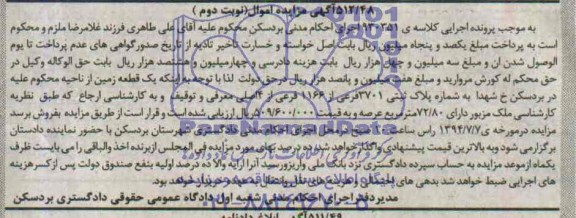 ۵۱۲/۴۸آگهی مزایده اموال(نوبت دوم )
به موجب پرونده اجرایی کلاسه ی ۹۳۰۳۵۱ اجرای احکام مدنی بردسکن محکوم علیه آقای علی طاهری فرزند غلامرضا ملزم و محکوم
است به پرداخت مبلغ یکصد و پنجاه میلیون ریال بابت اصل خواسته و خسارت تأخیر تادیه از تاریخ صدور گواهی های عدم پرداخت تا یوم
الوصول شدن آن و مبلغ سه میلیون و چهل هزار ریال بابت هزینه دادرسی و چهارمیلیون و هشتصد هزار ریال بابت حق الوکاله وکیل در
حق محکم له کورش مروارید و مبلغ هفت میلیون و پانصد هزار ریال در حق دولت لذا با توجه به اینکه یک قطعه زمین از ناحیه محکوم علیه
در بردسکن خ شهدا به شماره پلاک ثبتی ۳۷۰۱فرعی از ۱۱۶۶ فرعی از ۴اصلی معرفی و توقیف و به کارشناسی ارجاع که طبق نظریه
کارشناسی ملک مزبور دارای ۷۲/۸۰مترمربع عرصه و به قیمت ۵۰۹/۶۰۰/۰۰۰ریال ارزیابی شده است و قرار است از طریق مزایده بفروش برسد
مزایده درمورخه ی۱۳۹۴/۷/۷ راس ساعت صبح در محل اجرای احکام مدنی دادگستری شهرستان بردسکن با حضور نماینده دادستان
برگزار می شود وبه بالاترین قیمت پیشنهادی واگذار خواهد شد ده درصد بهای مورد مزایده فی المجلس ازبرنده اخذ والباقی را می بایست ظرف
یکماه ازموعد مزایده به حساب سپرده دادگستری نزد بانک ملی واریزورسید آنرا ارایه والا ده درصد اولیه بنفع صندوق دولت پس از کسر هزینه
های اجرایی ضبط خواهد شد بدهی های
مدیردفتر اجرای احکام مدنی شعبه اول دادگاه عمومی حقوقی دادگستری بردسکن
۵۱۱/۴۹آگهی ابلاغ دادنامه